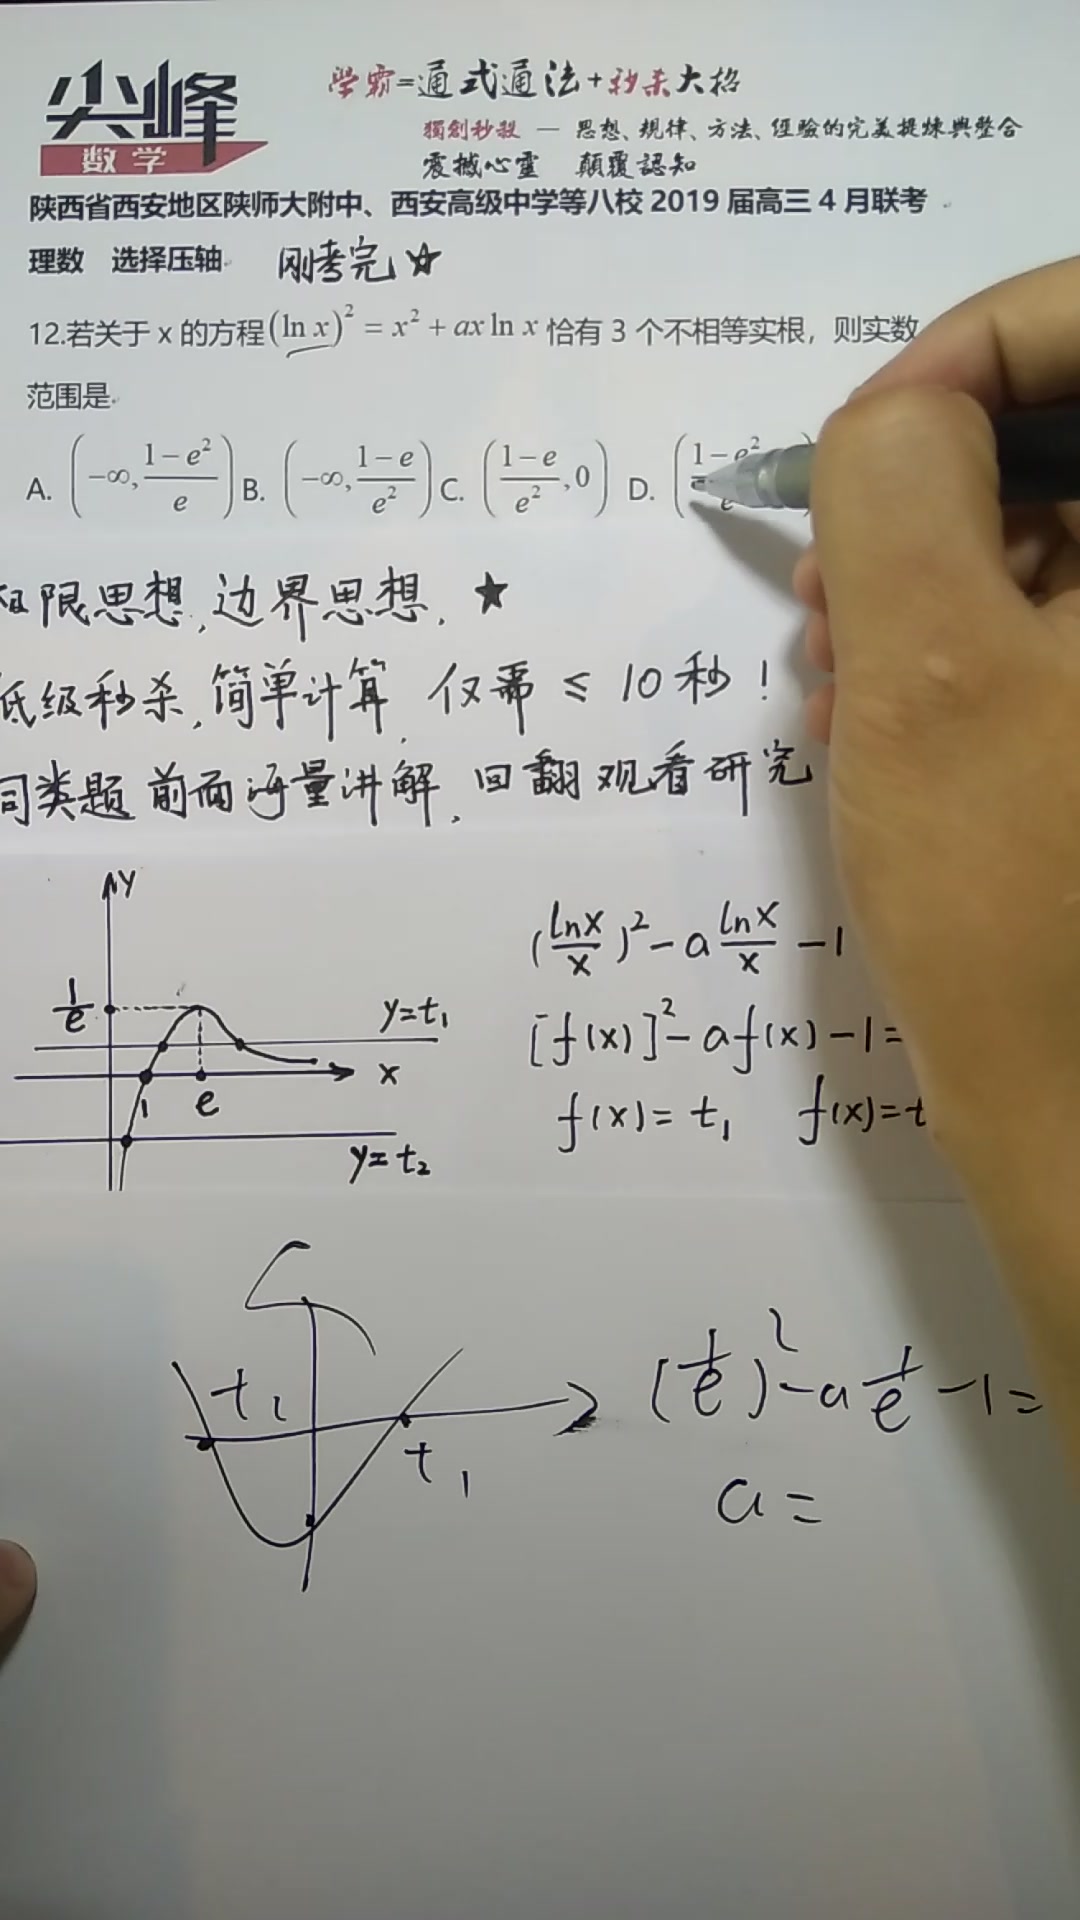 尖峰
数学
学霸=通式通法+秒杀大招
獨創秒殺 — 思想、规律、方法、经验的完美提煉與整合
震撼心靈 顛覆認知
陕西省西安地区陕师大附中、西安高级中学等八校 2019 届高三 4 月联考
理数 选择压轴 刚考完 ☆
12.若关于 x 的方程(ln x)² = x² + ax ln x 恰有 3 个不相等实根，则实数
范围是
A. (-∞, (1-e²)/e) B. (-∞, (1-e)/e²) C. ((1-e)/e², 0) D. ((1-e²)/e
限思想,边界思想. ★
低级秒杀,简单计算, 仅需 ≤ 10秒!
同类题前面海量讲解, 回翻观看研究
y
1/e
y=t₁
x
1 e
y=t₂
(lnx/x)² - a lnx/x - 1
[f(x)]² - af(x) - 1 =
f(x) = t₁ f(x) = t
t₂
t₁
(1/e)² - a 1/e - 1 =
a =